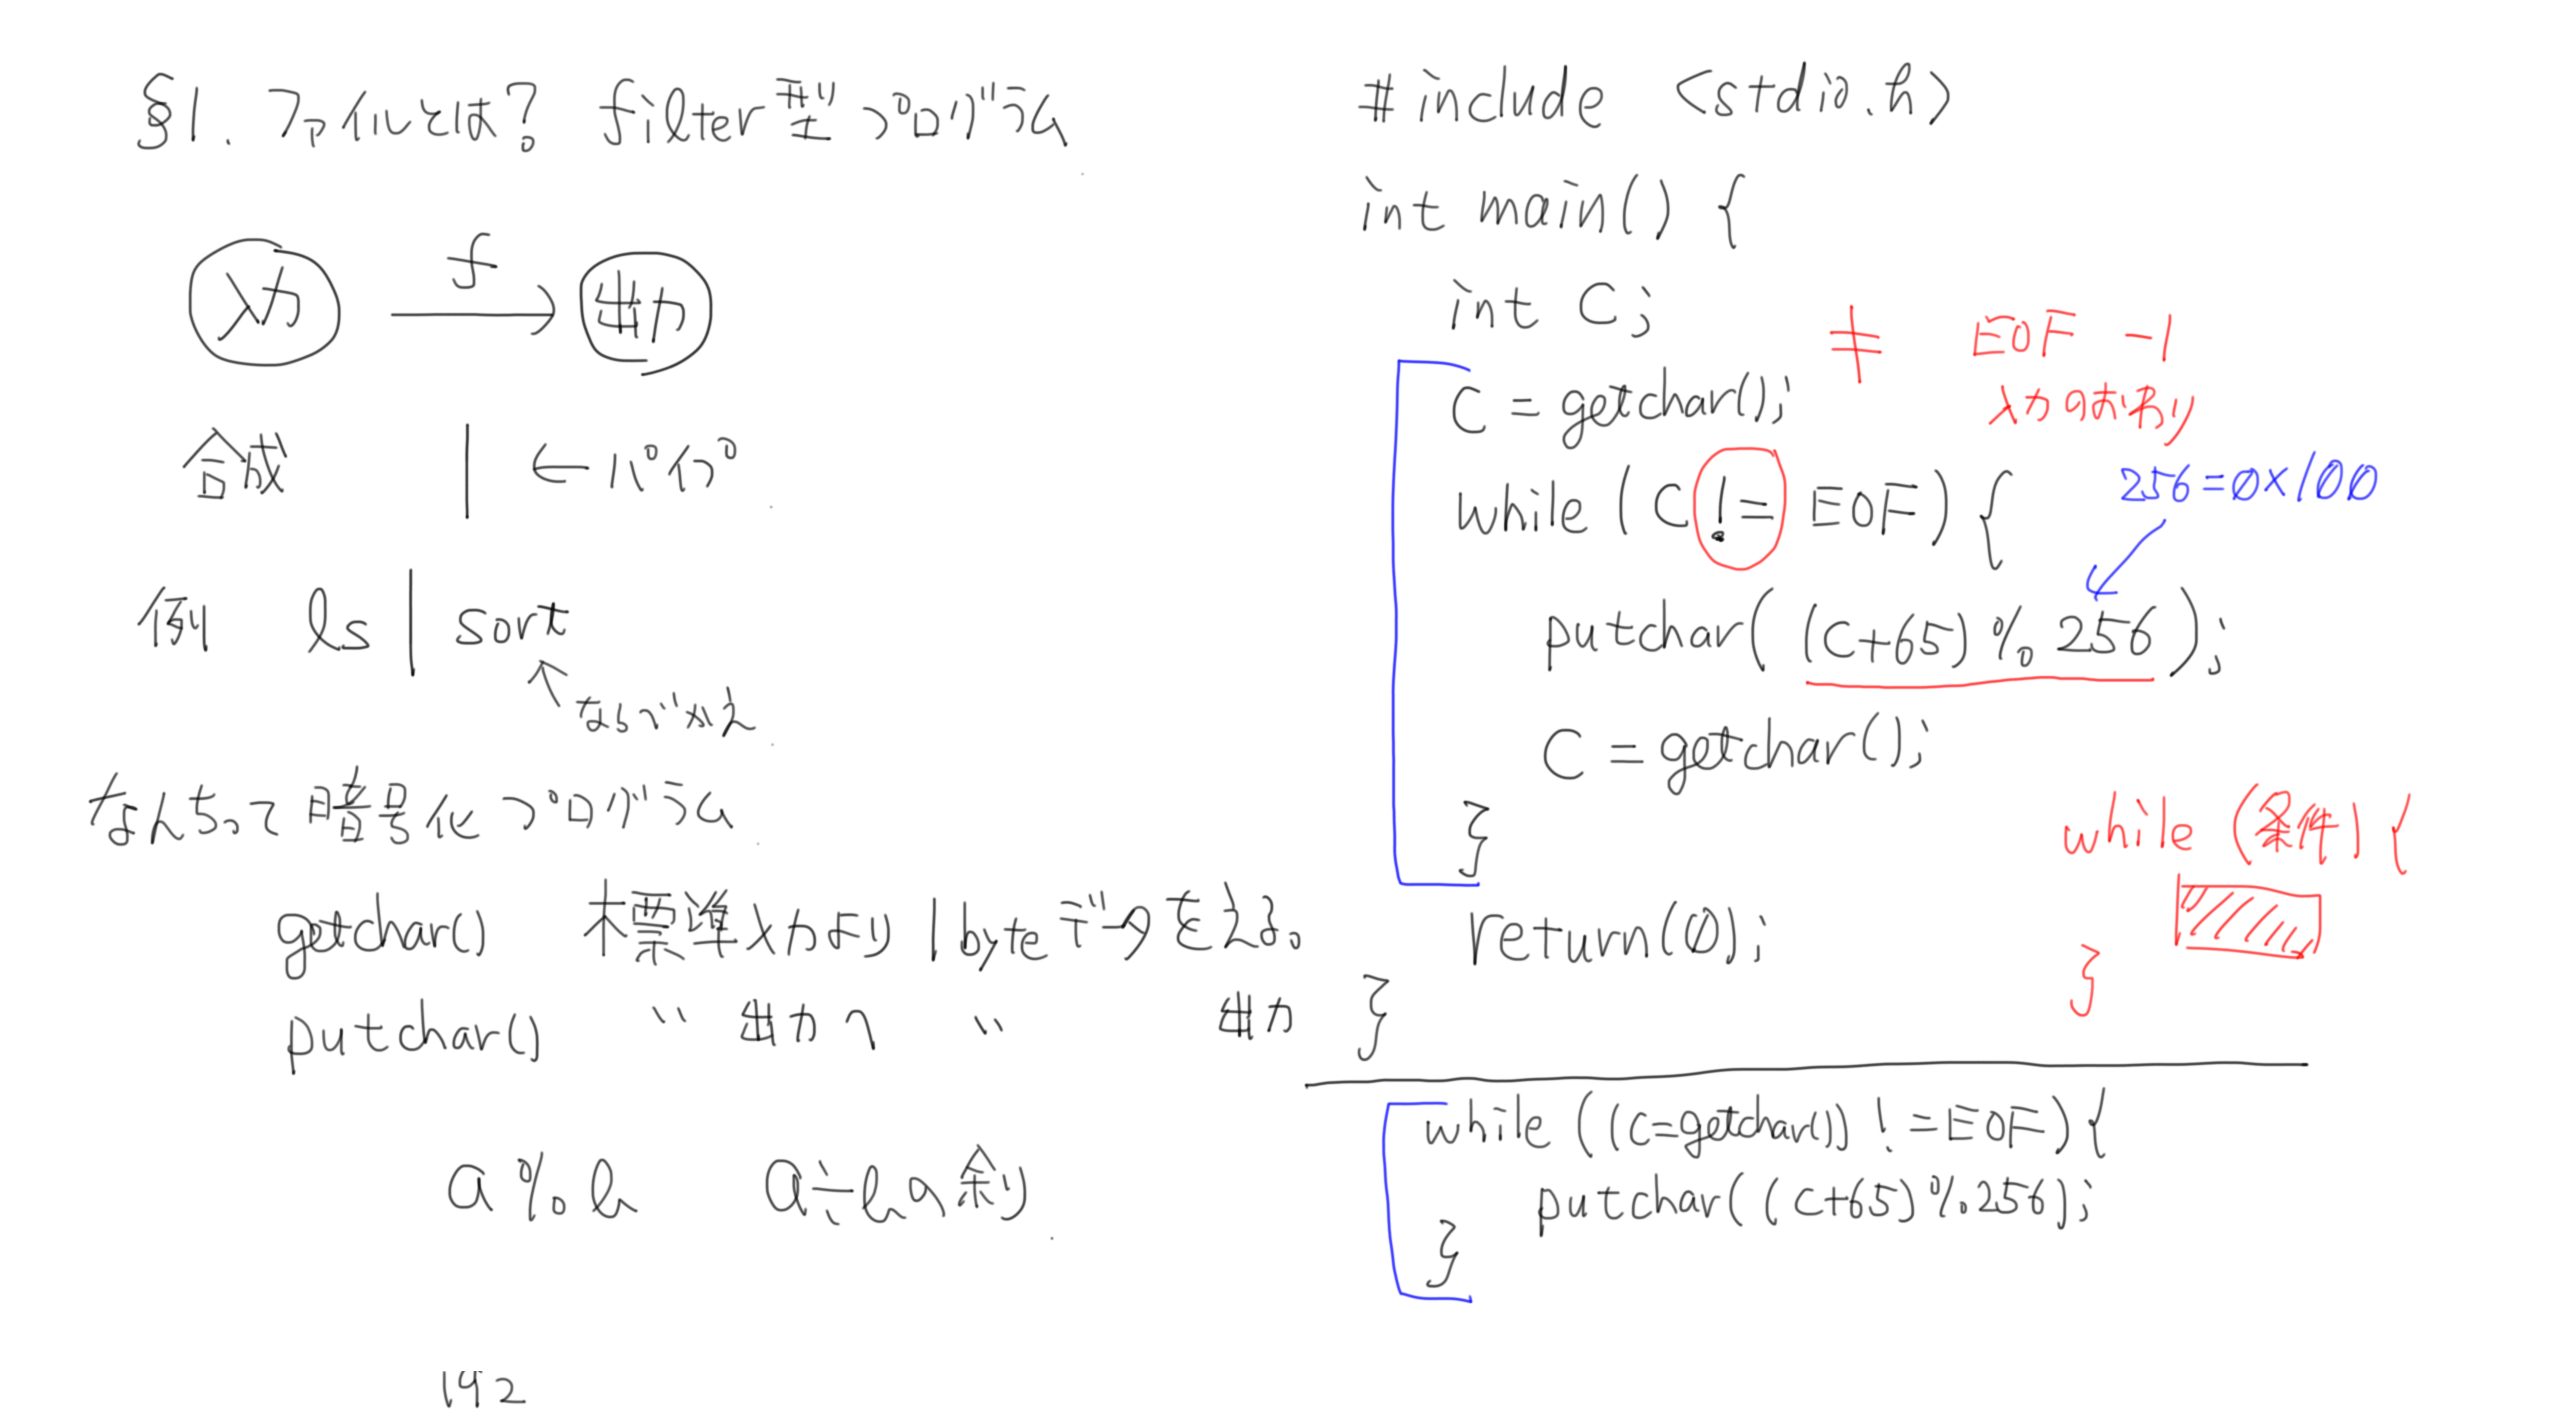 §1. ファイルとは? filter型プログラム
入力 f 出力
合成 | ←パイプ
例 ls | sort
ならべかえ
なんちって暗号化プログラム
getchar() 標準入力より1byteデータをえる。
putchar() 〃 出力へ 〃 出力
a % b a÷bの余り
#include <stdio.h>
int main() {
int C;
≠ EOF -1
入力のおわり
C = getchar();
while (C != EOF) {
256=0x100
putchar( (C+65) % 256 );
C = getchar();
}
while (条件) {
}
return(0);
}
while ((C=getchar()) != EOF) {
putchar( (C+65) % 256);
}